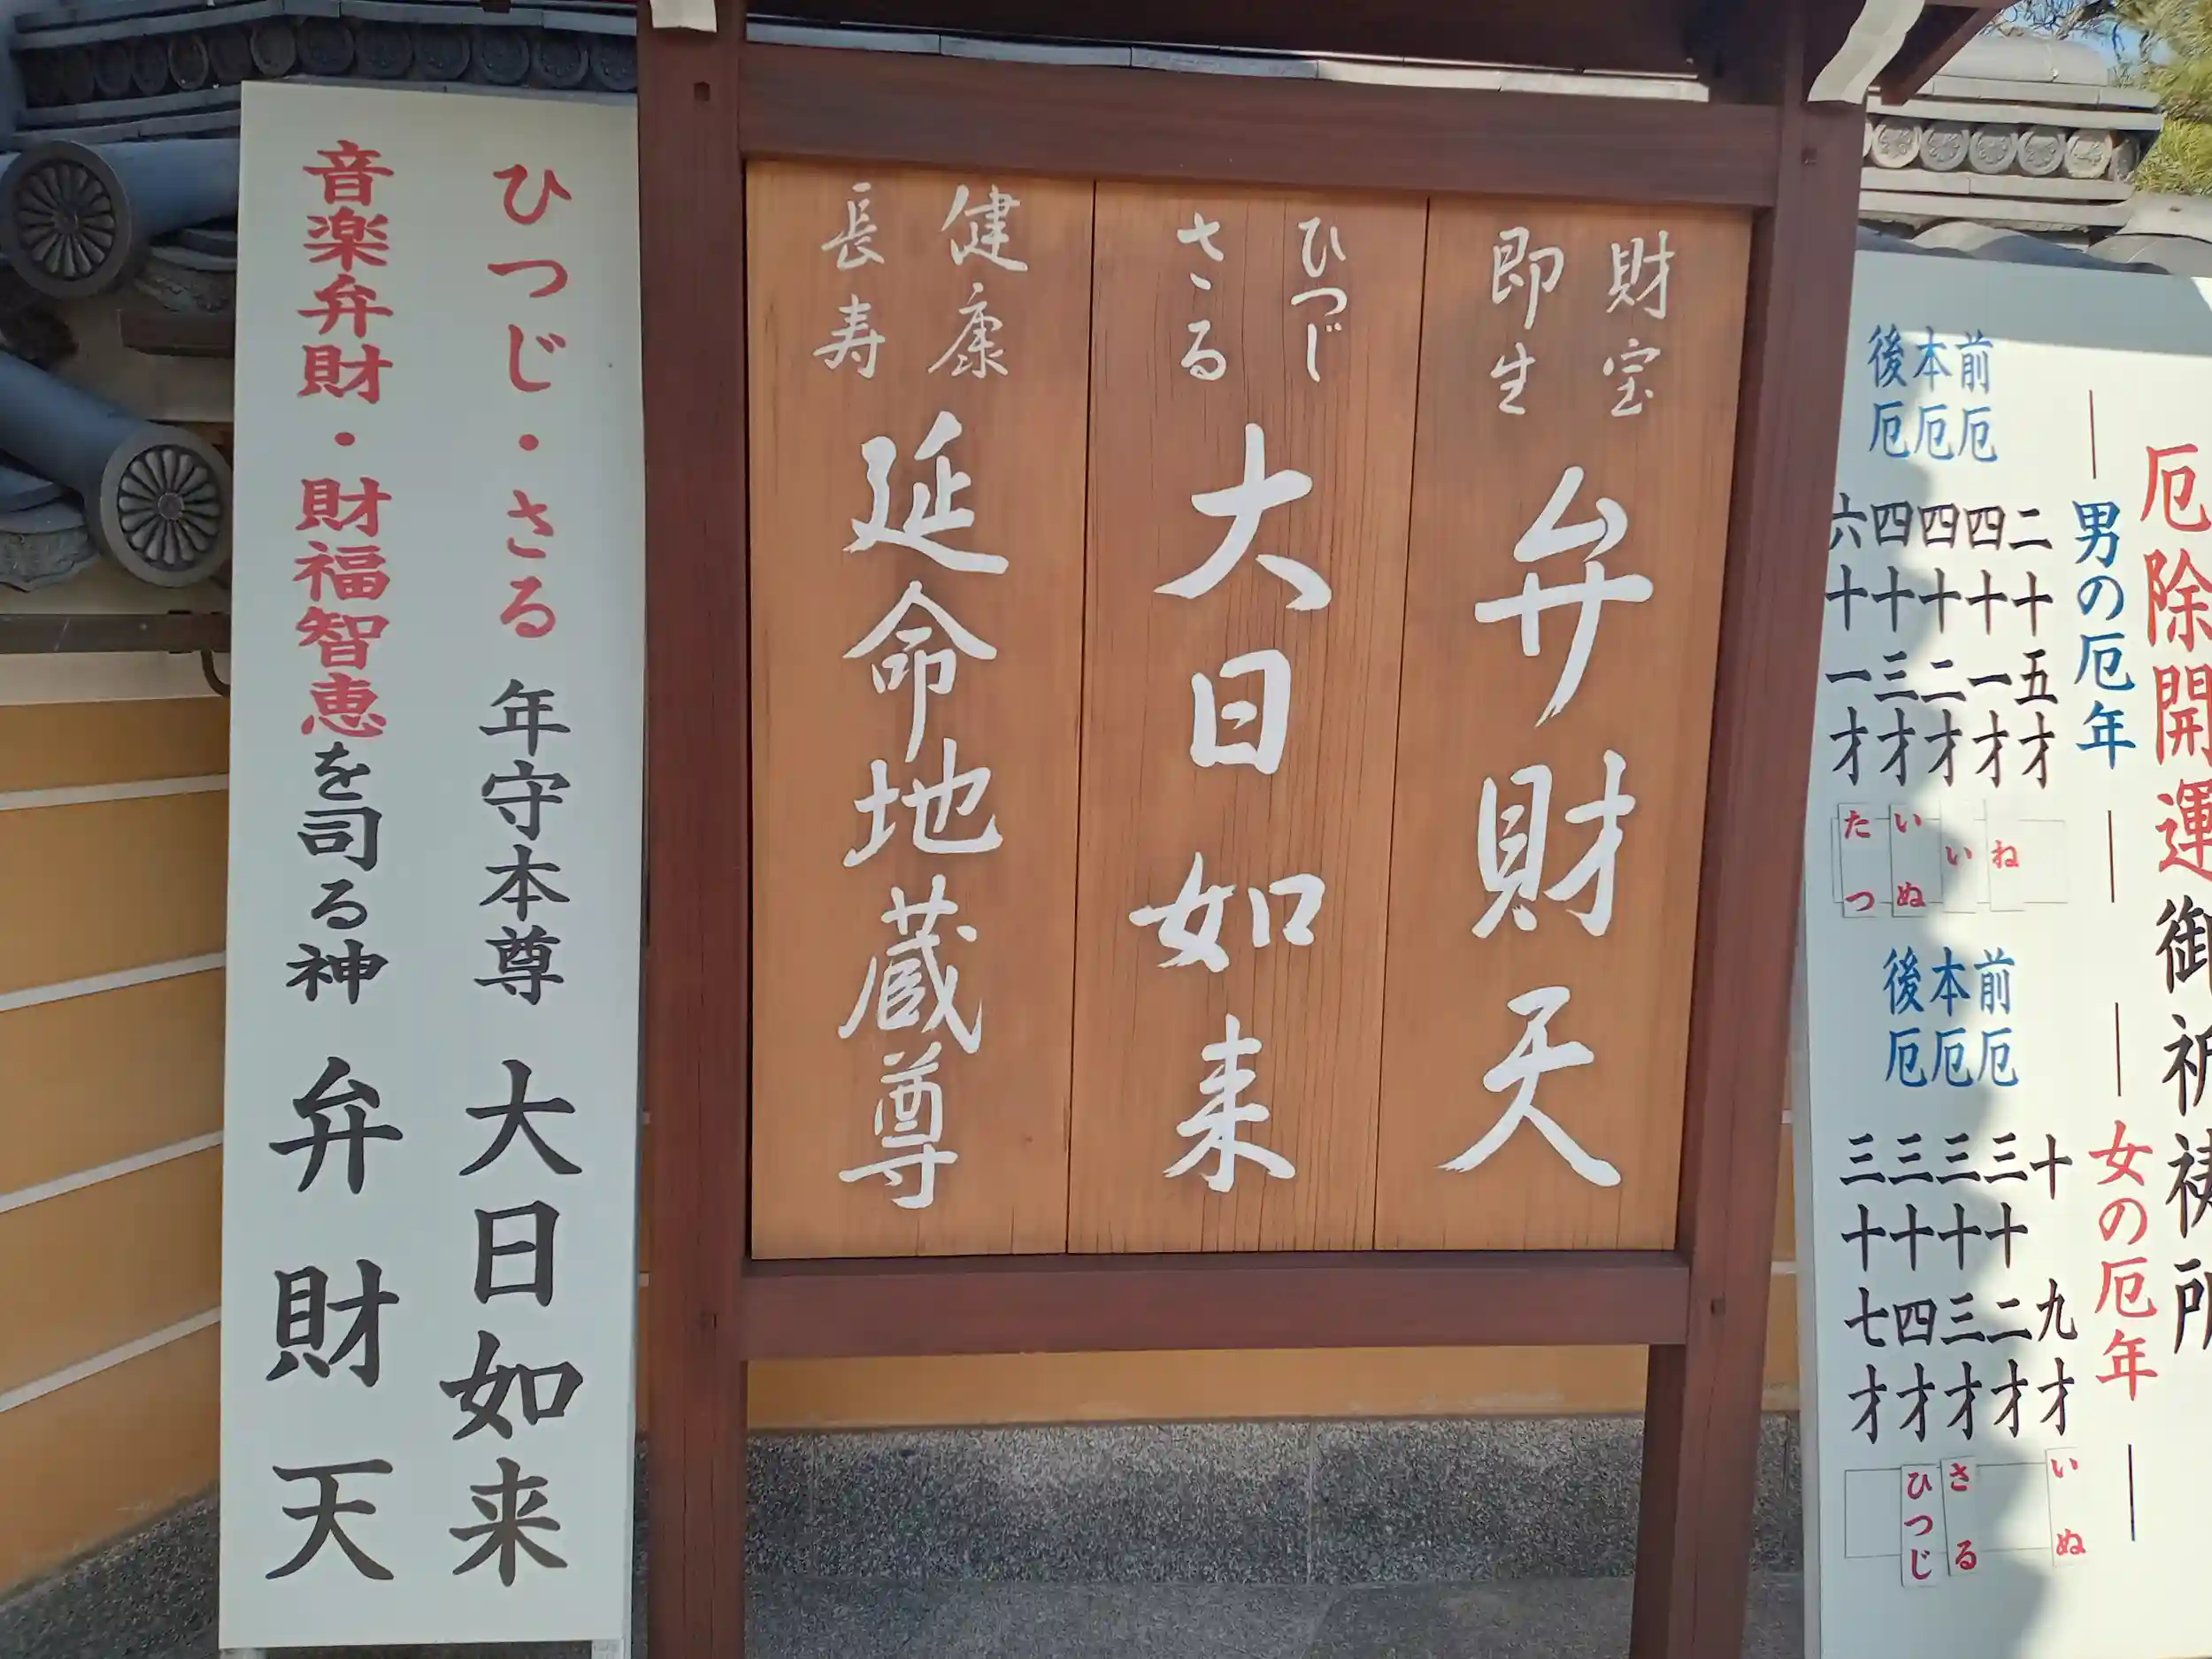 厄除開運御祈祷所
― 男の厄年 ―
前厄
本厄
後厄
二十五才
四十一才
四十二才
四十三才
六十一才
ね
い
いぬ
たつ
― 女の厄年 ―
前厄
本厄
後厄
十九才
三十二才
三十三才
三十四才
三十七才
いぬ
さる
ひつじ
財宝
即生
弁財天
ひつじ
さる
大日如来
健康
長寿
延命地蔵尊
ひつじ・さる 年守本尊 大日如来
音楽弁財・財福智恵を司る神 弁財天